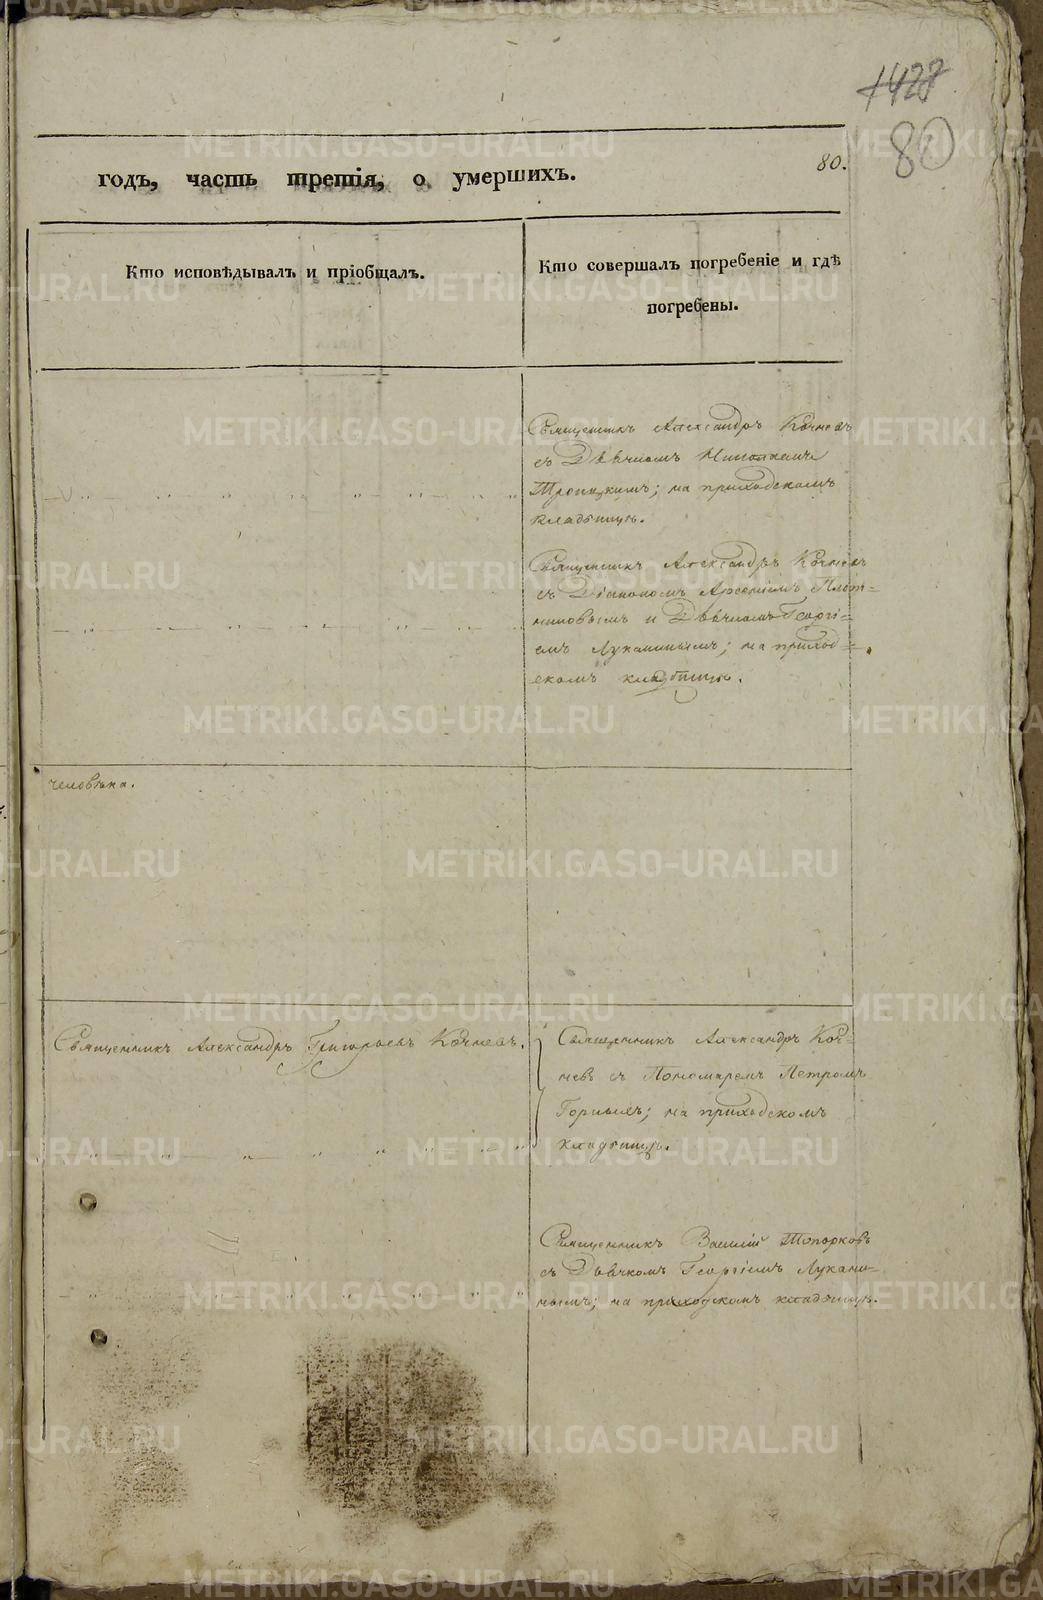 1428
80
80.
годъ, часть третія, о умершихъ.
Кто исповѣдывалъ и пріобщалъ.
Кто совершалъ погребеніе и гдѣ
погребены.
Священникъ Александръ Кочневъ
съ Дьячкомъ Николаемъ
Троицкимъ; на приходскомъ
кладбищѣ.
Священникъ Александръ Кочневъ
съ Діакономъ Арсеніемъ Плот=
никовымъ и Дьячкомъ Георгі=
емъ Луканинымъ; на приход=
скомъ кладбищѣ.
человѣка.
Священникъ Александръ Григорьевъ Кочневъ.
Священникъ Александръ Коч=
невъ съ Пономаремъ Петромъ
Горныхъ; на приходскомъ
кладбищѣ.
Священникъ Василій Топорковъ
съ Дьячкомъ Георгіемъ Лукани=
нымъ; на приходскомъ кладбищѣ.
METRIKI.GASO-URAL.RU